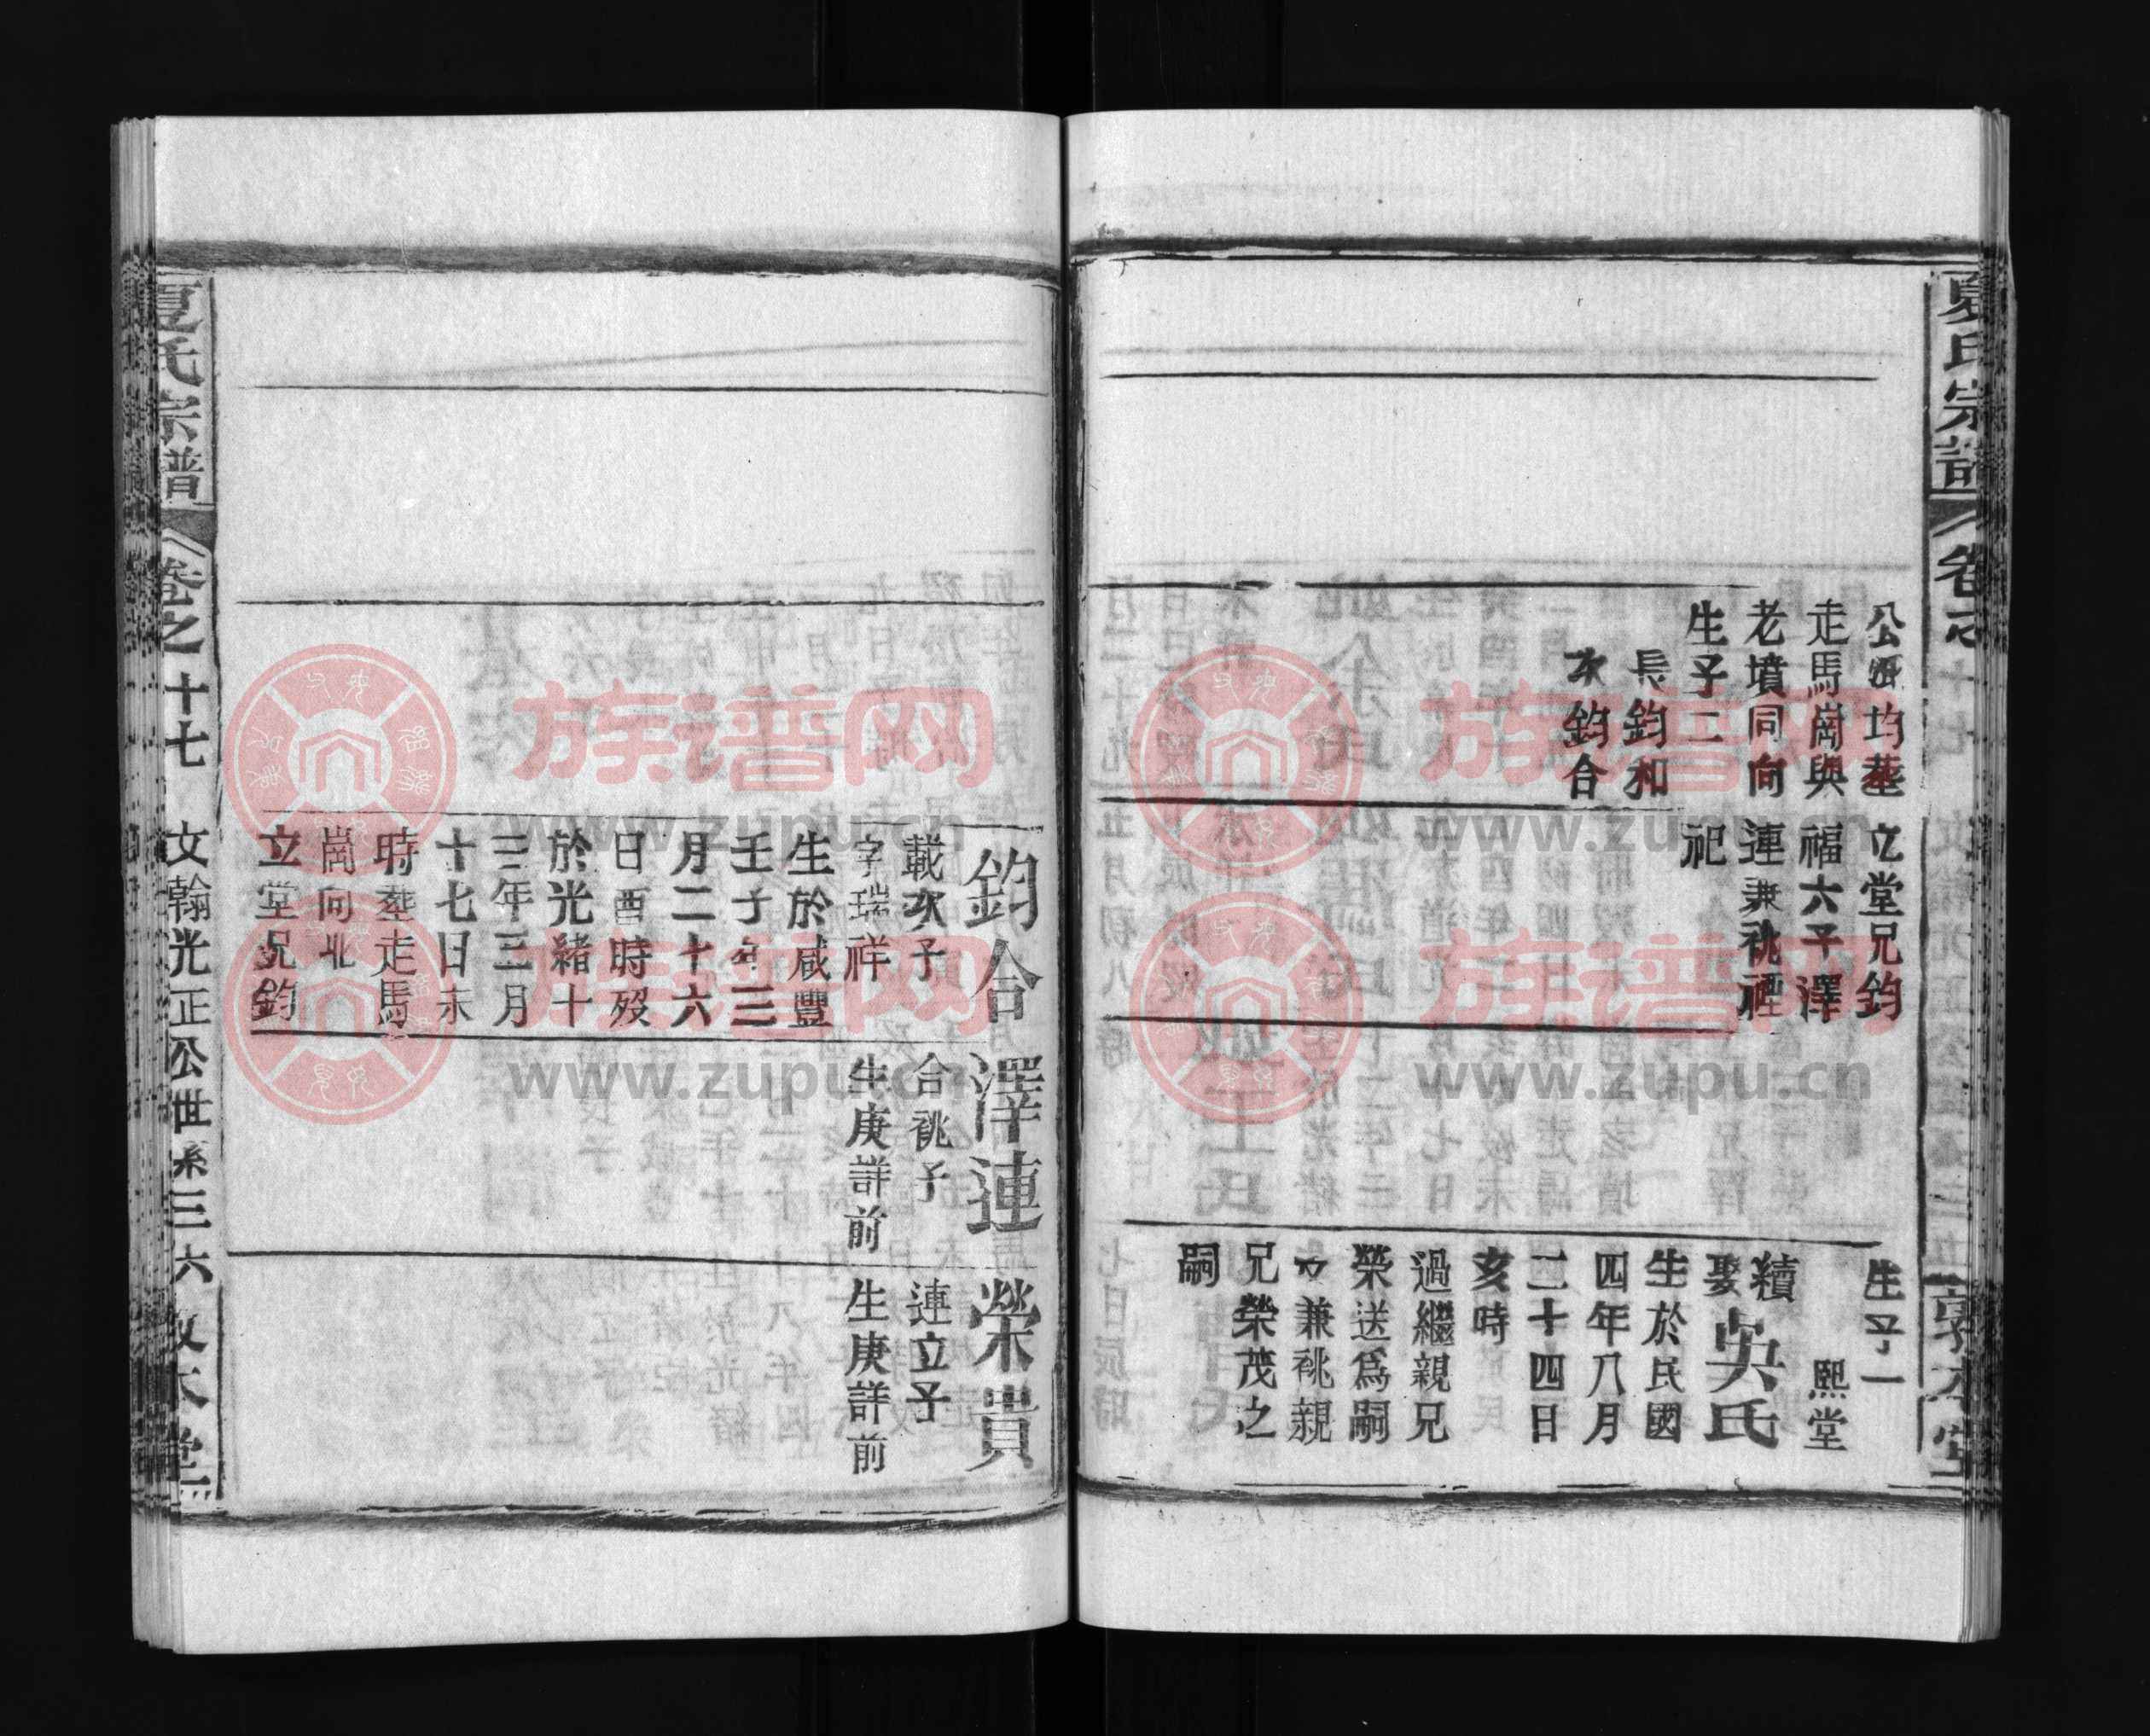 夏氏宗譜
卷之十七
公塋均塟
走馬崗與
老墳同向
生子二
長鈞和
次鈞合
立堂兄鈞
福六子澤
連兼祧禋
祀
生子一
熙堂
續娶吳氏
生於民國
四年八月
二十四日
亥時
過繼親兄
榮送爲嗣
兼祧親
兄榮茂之
嗣
敦本堂
鈞合
載次子
字瑞祥
生於咸豐
壬子年三
月二十六
日酉時歿
於光緒十
三年三月
十七日未
時塟走馬
崗向北
立堂兄鈞
澤連
合祧子
生庚詳前
榮貴
連立子
生庚詳前
夏氏宗譜
卷之十七
文翰光正公世系三六
敦本堂
族谱网
www.zupu.cn
族谱网
www.zupu.cn
族谱网
www.zupu.cn
族谱网
www.zupu.cn